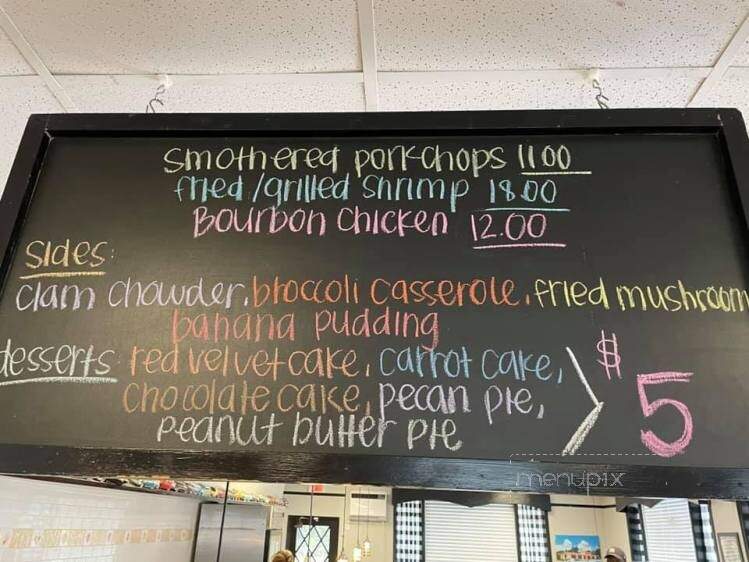 smothered porkchops 11.00
fried/grilled shrimp 18.00
Bourbon Chicken 12.00
Sides:
Clam chowder, broccoli casserole, fried mushroom
banana pudding
desserts: red velvet cake, carrot cake,
chocolate cake, pecan pie,
peanut butter pie
$5
menupix